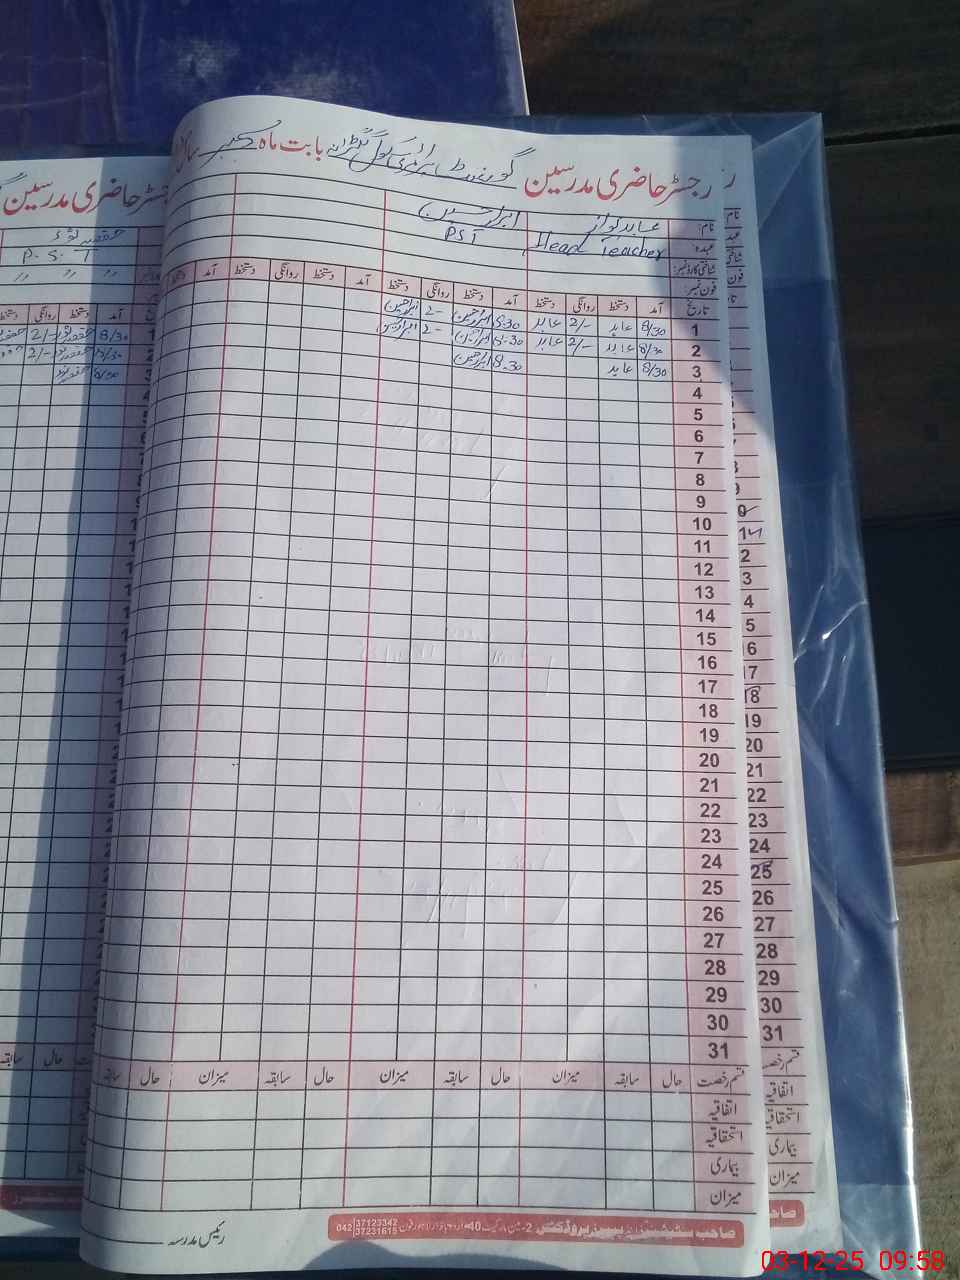 رجسٹر حاضری مدرسین گورنمنٹ پرائمری سکول بابت ماہ دسمبر
نام: عابد نواز ابرار حسین
عہدہ: Head Teacher PST
شناختی کارڈ نمبر:
فون نمبر:
تاریخ آمد دستخط روانگی دستخط آمد دستخط روانگی دستخط آمد دستخط روانگی دستخط آمد دستخط
1 8/30 عابد 2/- عابد 8.30 ابرار حسین 2/- ابرار حسین
2 8/30 عابد 2/- عابد 8.30 ابرار حسین 2/- ابرار حسین
3 8/30 عابد 8.30 ابرار حسین
4
5
6
7
8
9
10
11
12
13
14
15
16
17
18
19
20
21
22
23
24
25
26
27
28
29
30
31
قسم رخصت حال سابقہ میزان حال سابقہ میزان حال سابقہ میزان حال سابقہ
اتفاقیہ
استحقاقیہ
بیماری
میزان
رئیس مدرسہ
042 37123342
37231615
رجسٹر حاضری مدرسین
P.S.T
آمد دستخط روانگی دستخط
8/30 2/-
8/30 2/-
8/30
حال سابقہ
18
19
20
21
22
23
24
25
26
27
28
29
30
31
قسم رخصت
اتفاقیہ
استحقاقیہ
بیماری
میزان
03-12-25 09:58